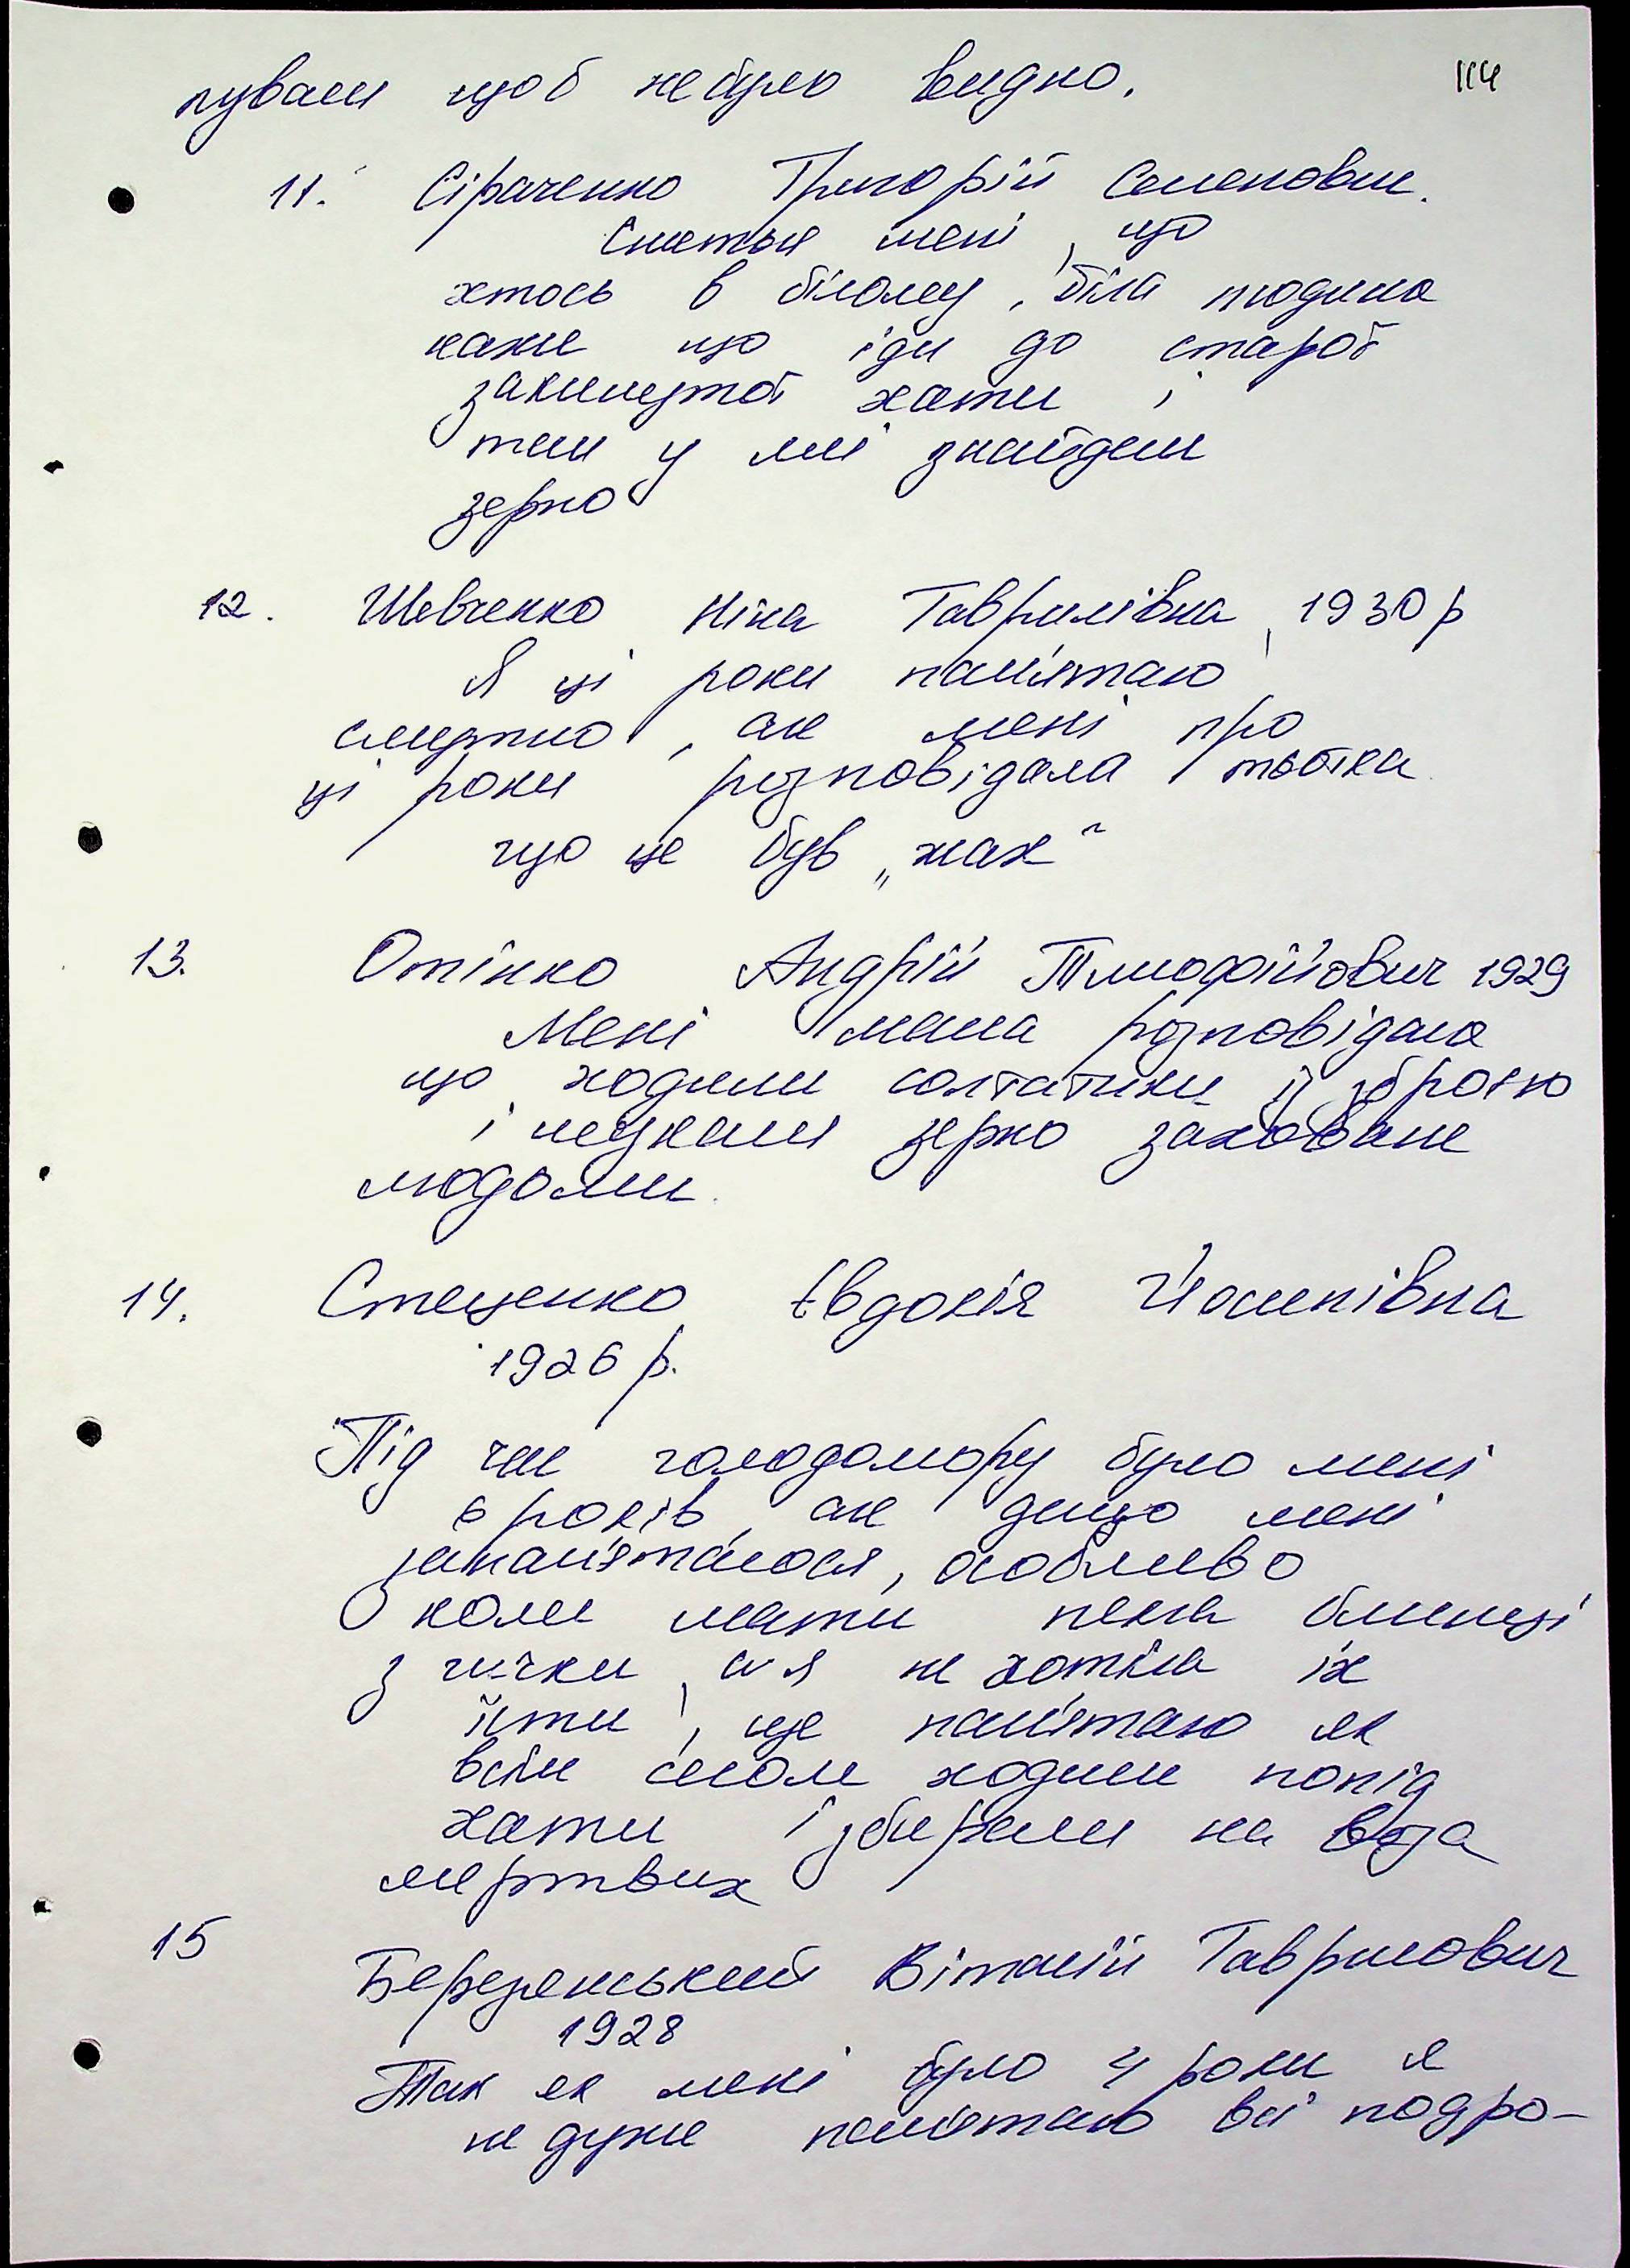 114
пували щоб небуло видно.
11. Сіраченко Григорій Семенович.
Сниться мені, що
хтось в білому, біла людина
каже що іди до старої
закинутої хати і
там у ямі знайдеш
зерно
12. Шевченко Ніна Гаврилівна, 1930 р
Я ці роки пам'ятаю
смутно, але мені про
ці роки розповідала тьотка
що це був „жах"
13. Отінко Андрій Тимофійович 1929
Мені мама розповідала
що ходили солтатики із зброєю
і шукали зерно заховане
людьми.
14. Стеценко Євдокія Йосипівна
1926 р.
Під час голодомору було мені
6 років, але дещо мені
запам'яталося, особливо
коли мати пекла блинці
з гички, а я не хотіла їх
їсти, ще пам'ятаю як
всім селом ходили попід
хати і збирали на воза
мертвих
15 Березянський Віталій Гаврилович
1928
Так як мені було 4 роки я
не дуже пам'ятаю всі подро-